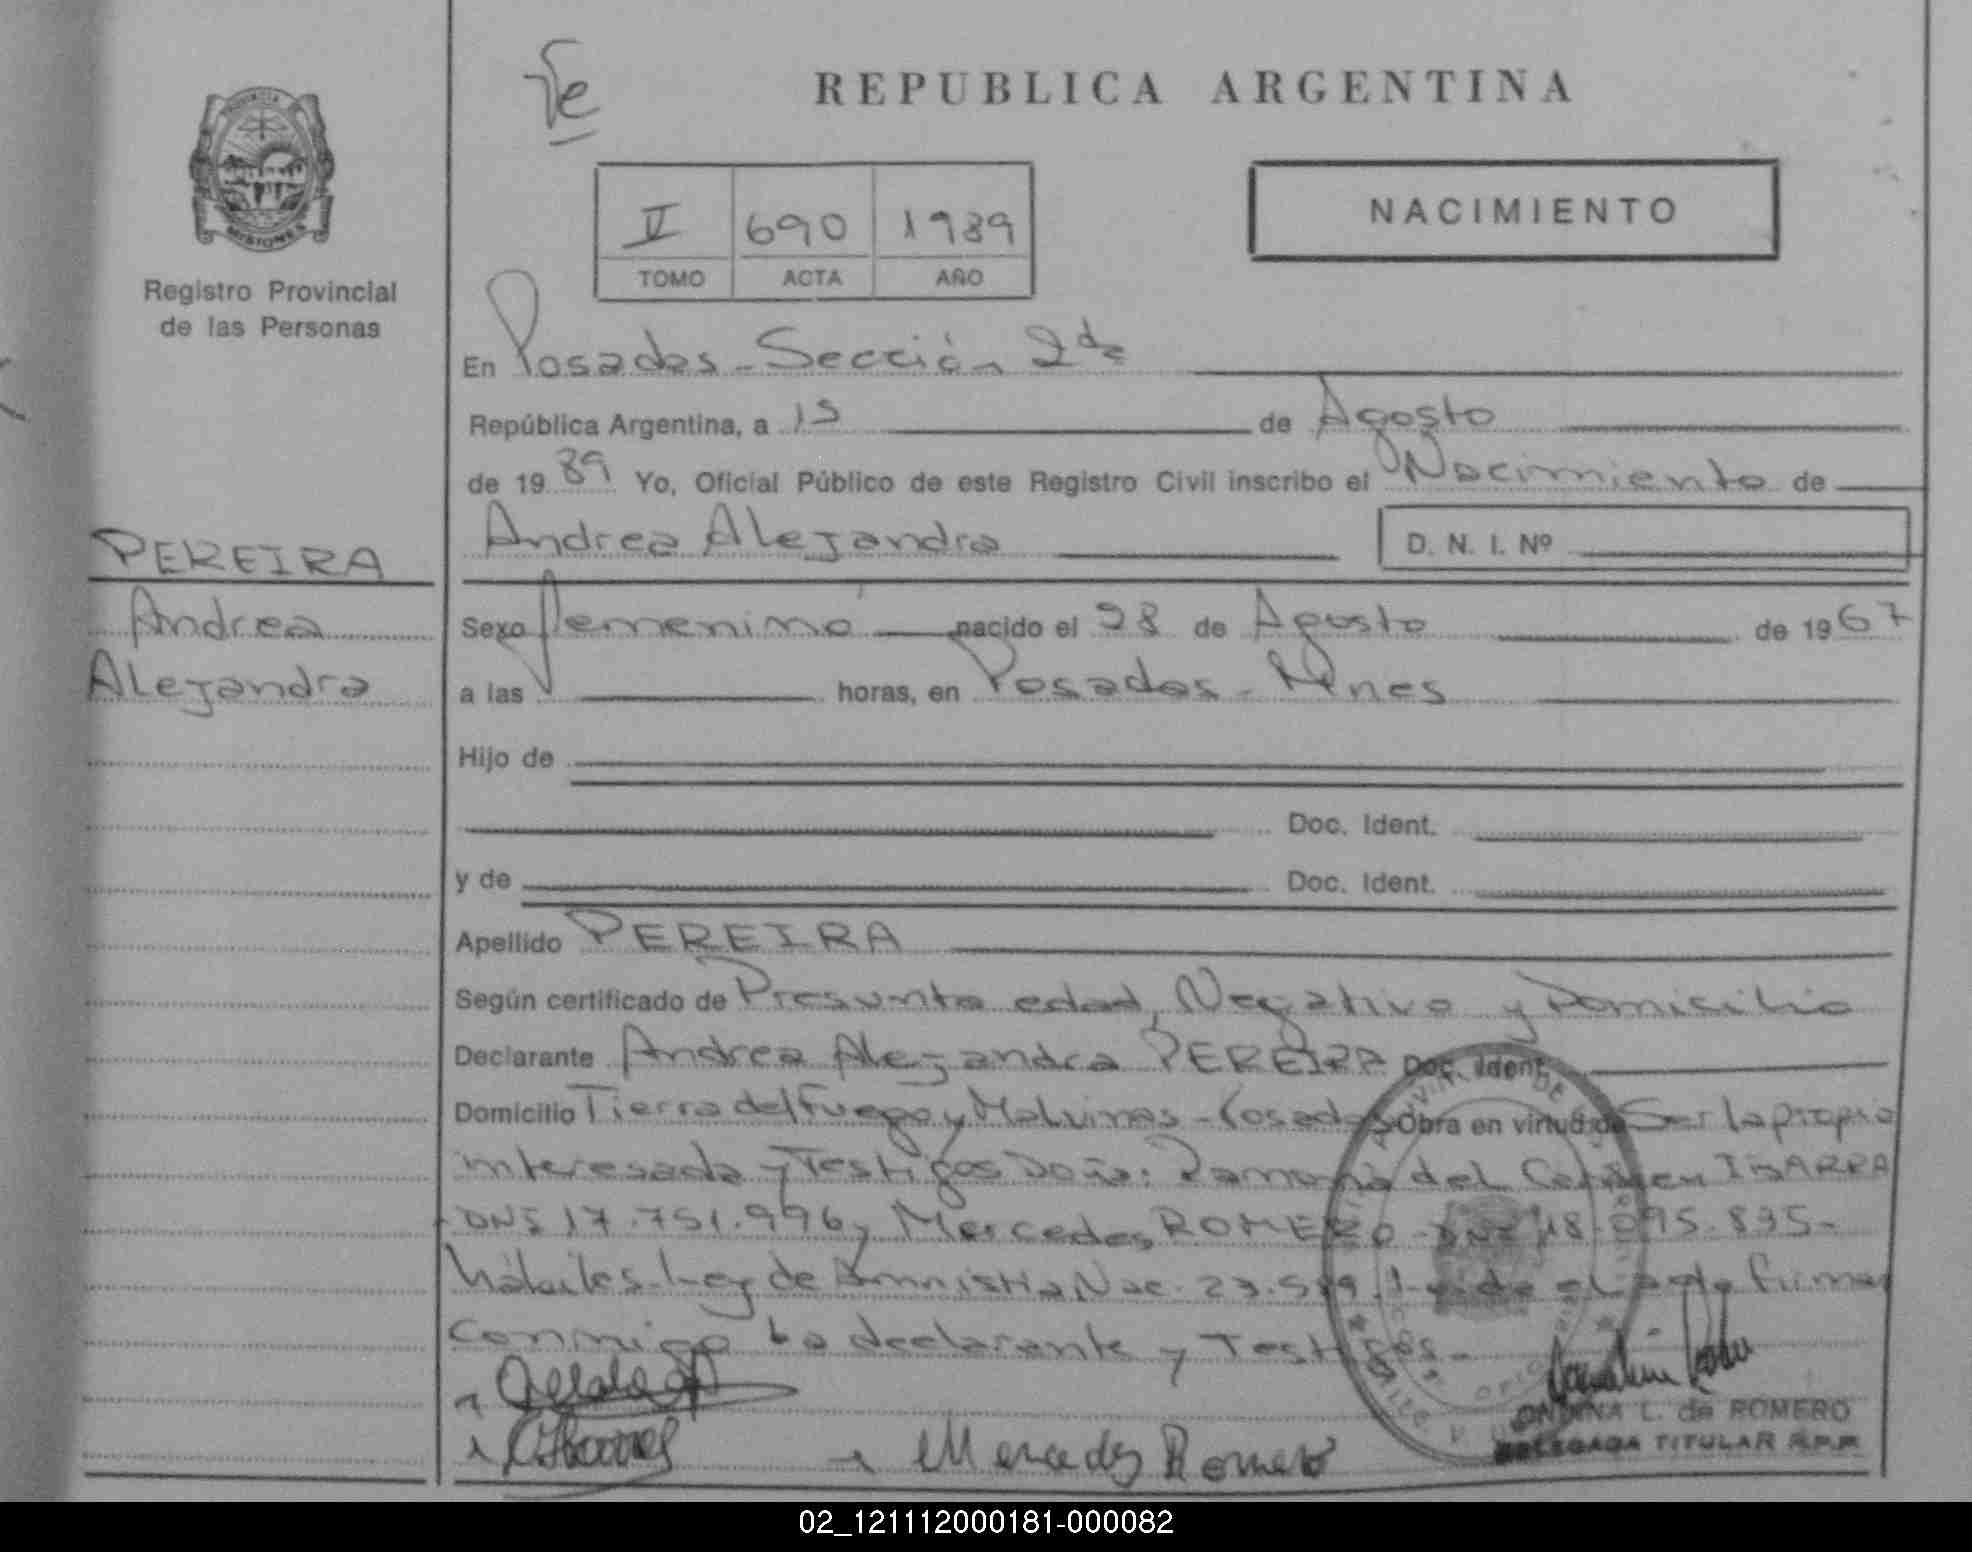 Te
REPUBLICA ARGENTINA
PROVINCIA
MISIONES
Registro Provincial
de las Personas
V 690 1989
TOMO ACTA AÑO
NACIMIENTO
En Posadas - Sección 2da
República Argentina, a 15 de Agosto
de 1989 Yo, Oficial Público de este Registro Civil inscribo el Nacimiento de
Andrea Alejandra D. N. I. Nº
PEREIRA
Andrea
Alejandra
Sexo femenino nacido el 28 de Agosto de 1967
a las horas, en Posadas - Mnes
Hijo de
Doc. Ident.
y de Doc. Ident.
Apellido PEREIRA
Según certificado de Presunta edad, Negativo y Domicilio
Declarante Andrea Alejandra PEREIRA Doc. Ident.
Domicilio Tierra del Fuego y Malvinas - Posadas Obra en virtud de Ser la propia
interesada y Testigos Doña: Ramona del Carmen IBARRA
DNI 17.751.996 y Mercedes ROMERO - DNI 18.095.835-
hábiles. Ley de Amnistia Nac. 23. Leida el acta firman
conmigo la declarante y Testigos.-
Mercedes Romero
ONDINA L. de ROMERO
DELEGADA TITULAR R.P.P.
02_121112000181-000082